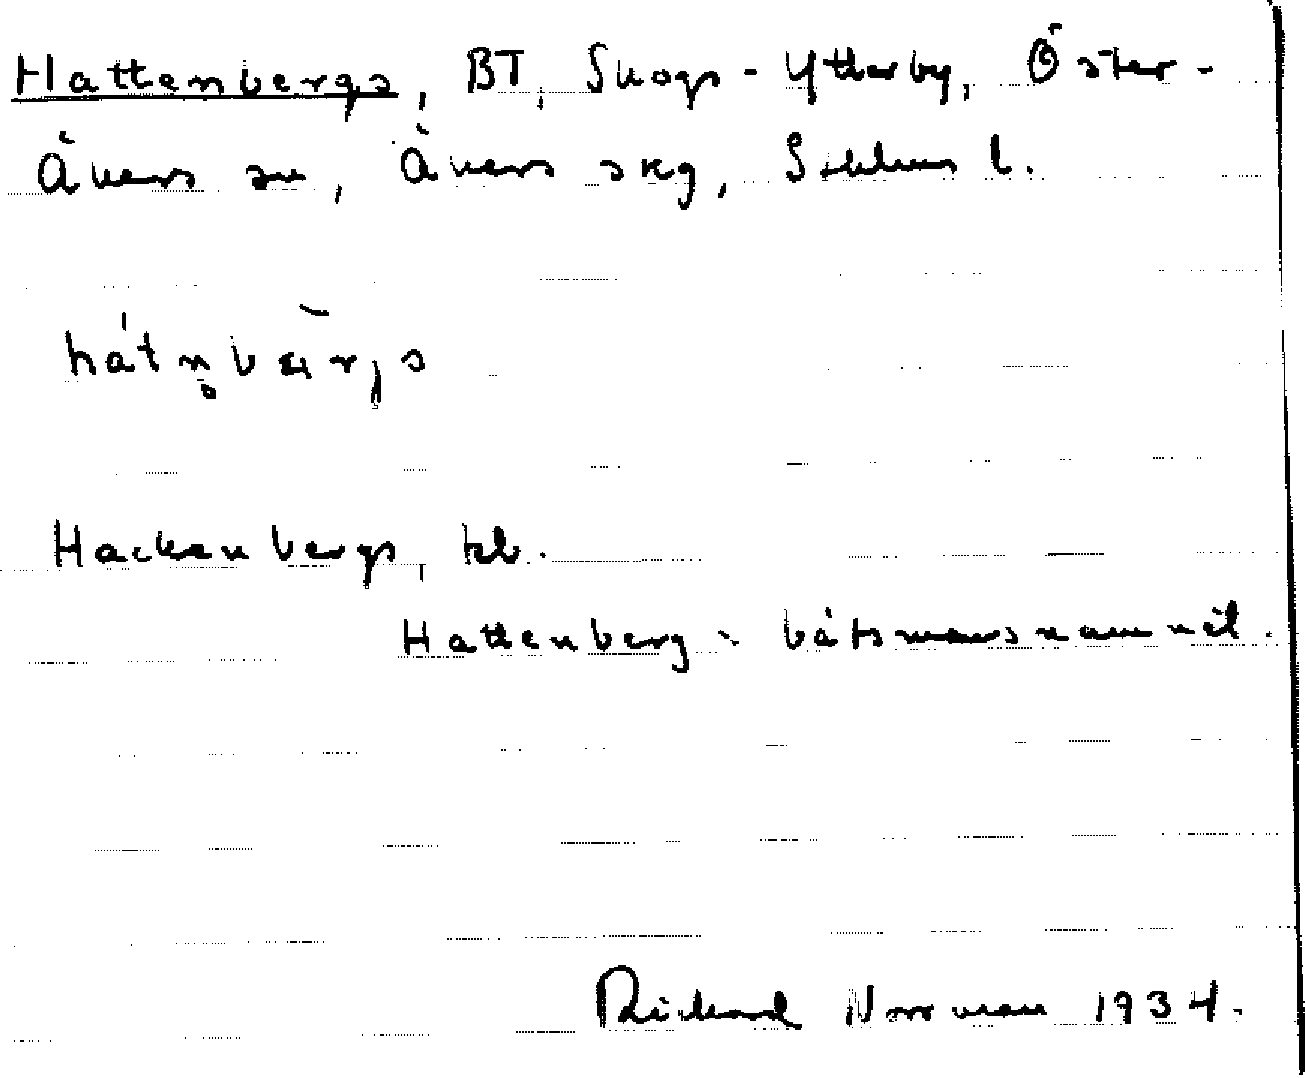 Hattenbergs, BT, Skogs-Ytterby, Öster-
Åkers sn, Åkers skg, Sthlms l.
hátn̥bærjs
Hackenbergs, kb.
Hattenberg = båtsmansnamnet.
Rickard Norrman 1934.